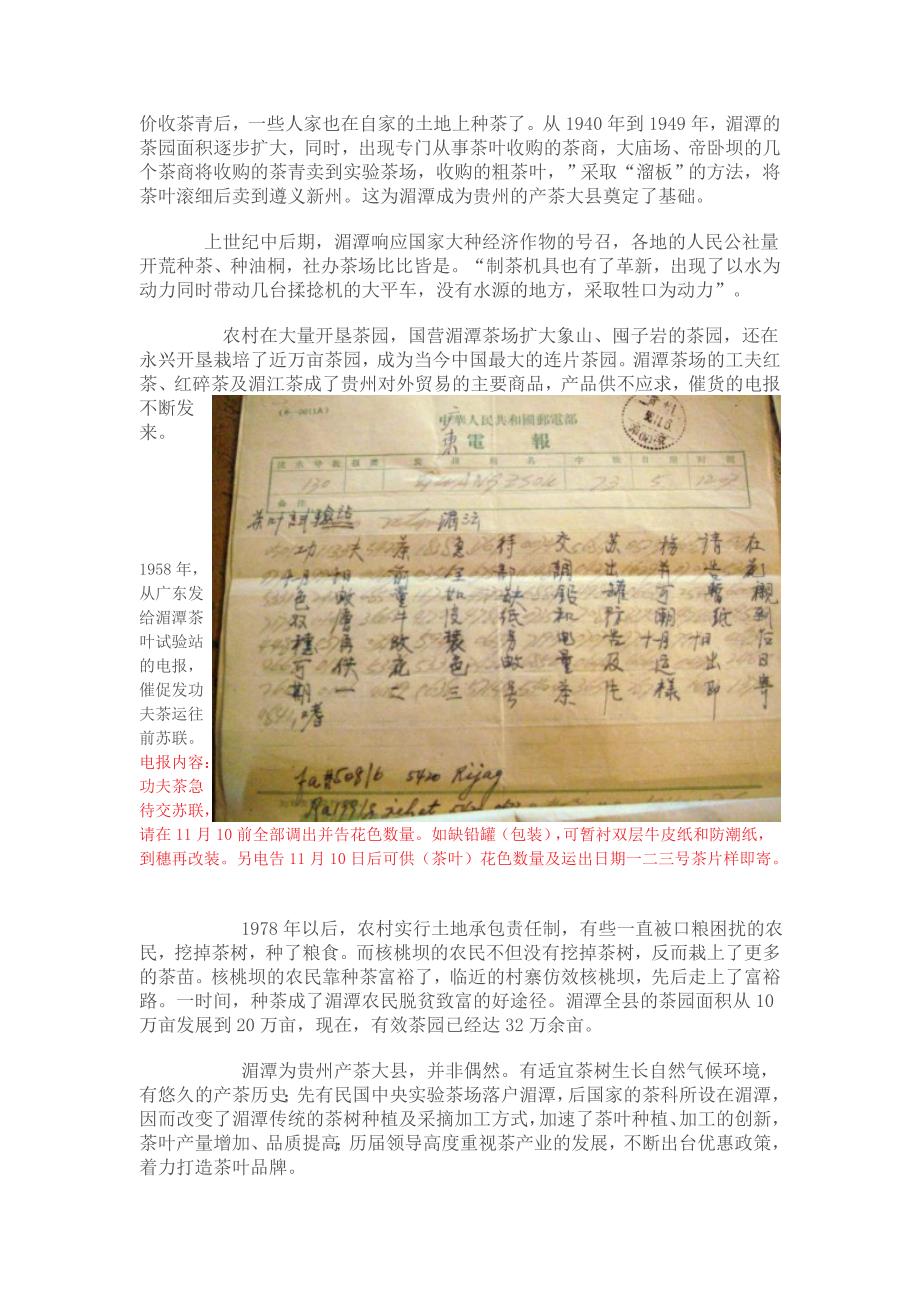 价收茶青后，一些人家也在自家的土地上种茶了。从 1940 年到 1949 年，湄潭的
茶园面积逐步扩大，同时，出现专门从事茶叶收购的茶商，大庙场、帝卧坝的几
个茶商将收购的茶青卖到实验茶场，收购的粗茶叶，”采取“溜板”的方法，将
茶叶滚细后卖到遵义新州。这为湄潭成为贵州的产茶大县奠定了基础。
上世纪中后期，湄潭响应国家大种经济作物的号召，各地的人民公社量
开荒种茶、种油桐，社办茶场比比皆是。“制茶机具也有了革新，出现了以水为
动力同时带动几台揉捻机的大平车，没有水源的地方，采取牲口为动力”。
农村在大量开垦茶园，国营湄潭茶场扩大象山、囤子岩的茶园，还在
永兴开垦栽培了近万亩茶园，成为当今中国最大的连片茶园。湄潭茶场的工夫红
茶、红碎茶及湄江茶成了贵州对外贸易的主要商品，产品供不应求，催货的电报
不断发
来。
中華人民共和國郵電部
電報
广东
130
23 5
备注
茶叶試驗站
功夫茶急待交苏
1958 年，
从广东发
给湄潭茶
叶试验站
的电报，
催促发功
夫茶运往
前苏联。
电报内容：
功夫茶急
待交苏联，
请在 11 月 10 前全部调出并告花色数量。如缺铅罐（包装），可暂衬双层牛皮纸和防潮纸，
到穗再改装。另电告 11 月 10 日后可供（茶叶）花色数量及运出日期一二三号茶片样即寄。
1978 年以后，农村实行土地承包责任制，有些一直被口粮困扰的农
民，挖掉茶树，种了粮食。而核桃坝的农民不但没有挖掉茶树，反而栽上了更多
的茶苗。核桃坝的农民靠种茶富裕了，临近的村寨仿效核桃坝，先后走上了富裕
路。一时间，种茶成了湄潭农民脱贫致富的好途径。湄潭全县的茶园面积从 10
万亩发展到 20 万亩，现在，有效茶园已经达 32 万余亩。
湄潭为贵州产茶大县，并非偶然。有适宜茶树生长自然气候环境，
有悠久的产茶历史；先有民国中央实验茶场落户湄潭，后国家的茶科所设在湄潭，
因而改变了湄潭传统的茶树种植及采摘加工方式，加速了茶叶种植、加工的创新，
茶叶产量增加、品质提高；历届领导高度重视茶产业的发展，不断出台优惠政策，
着力打造茶叶品牌。